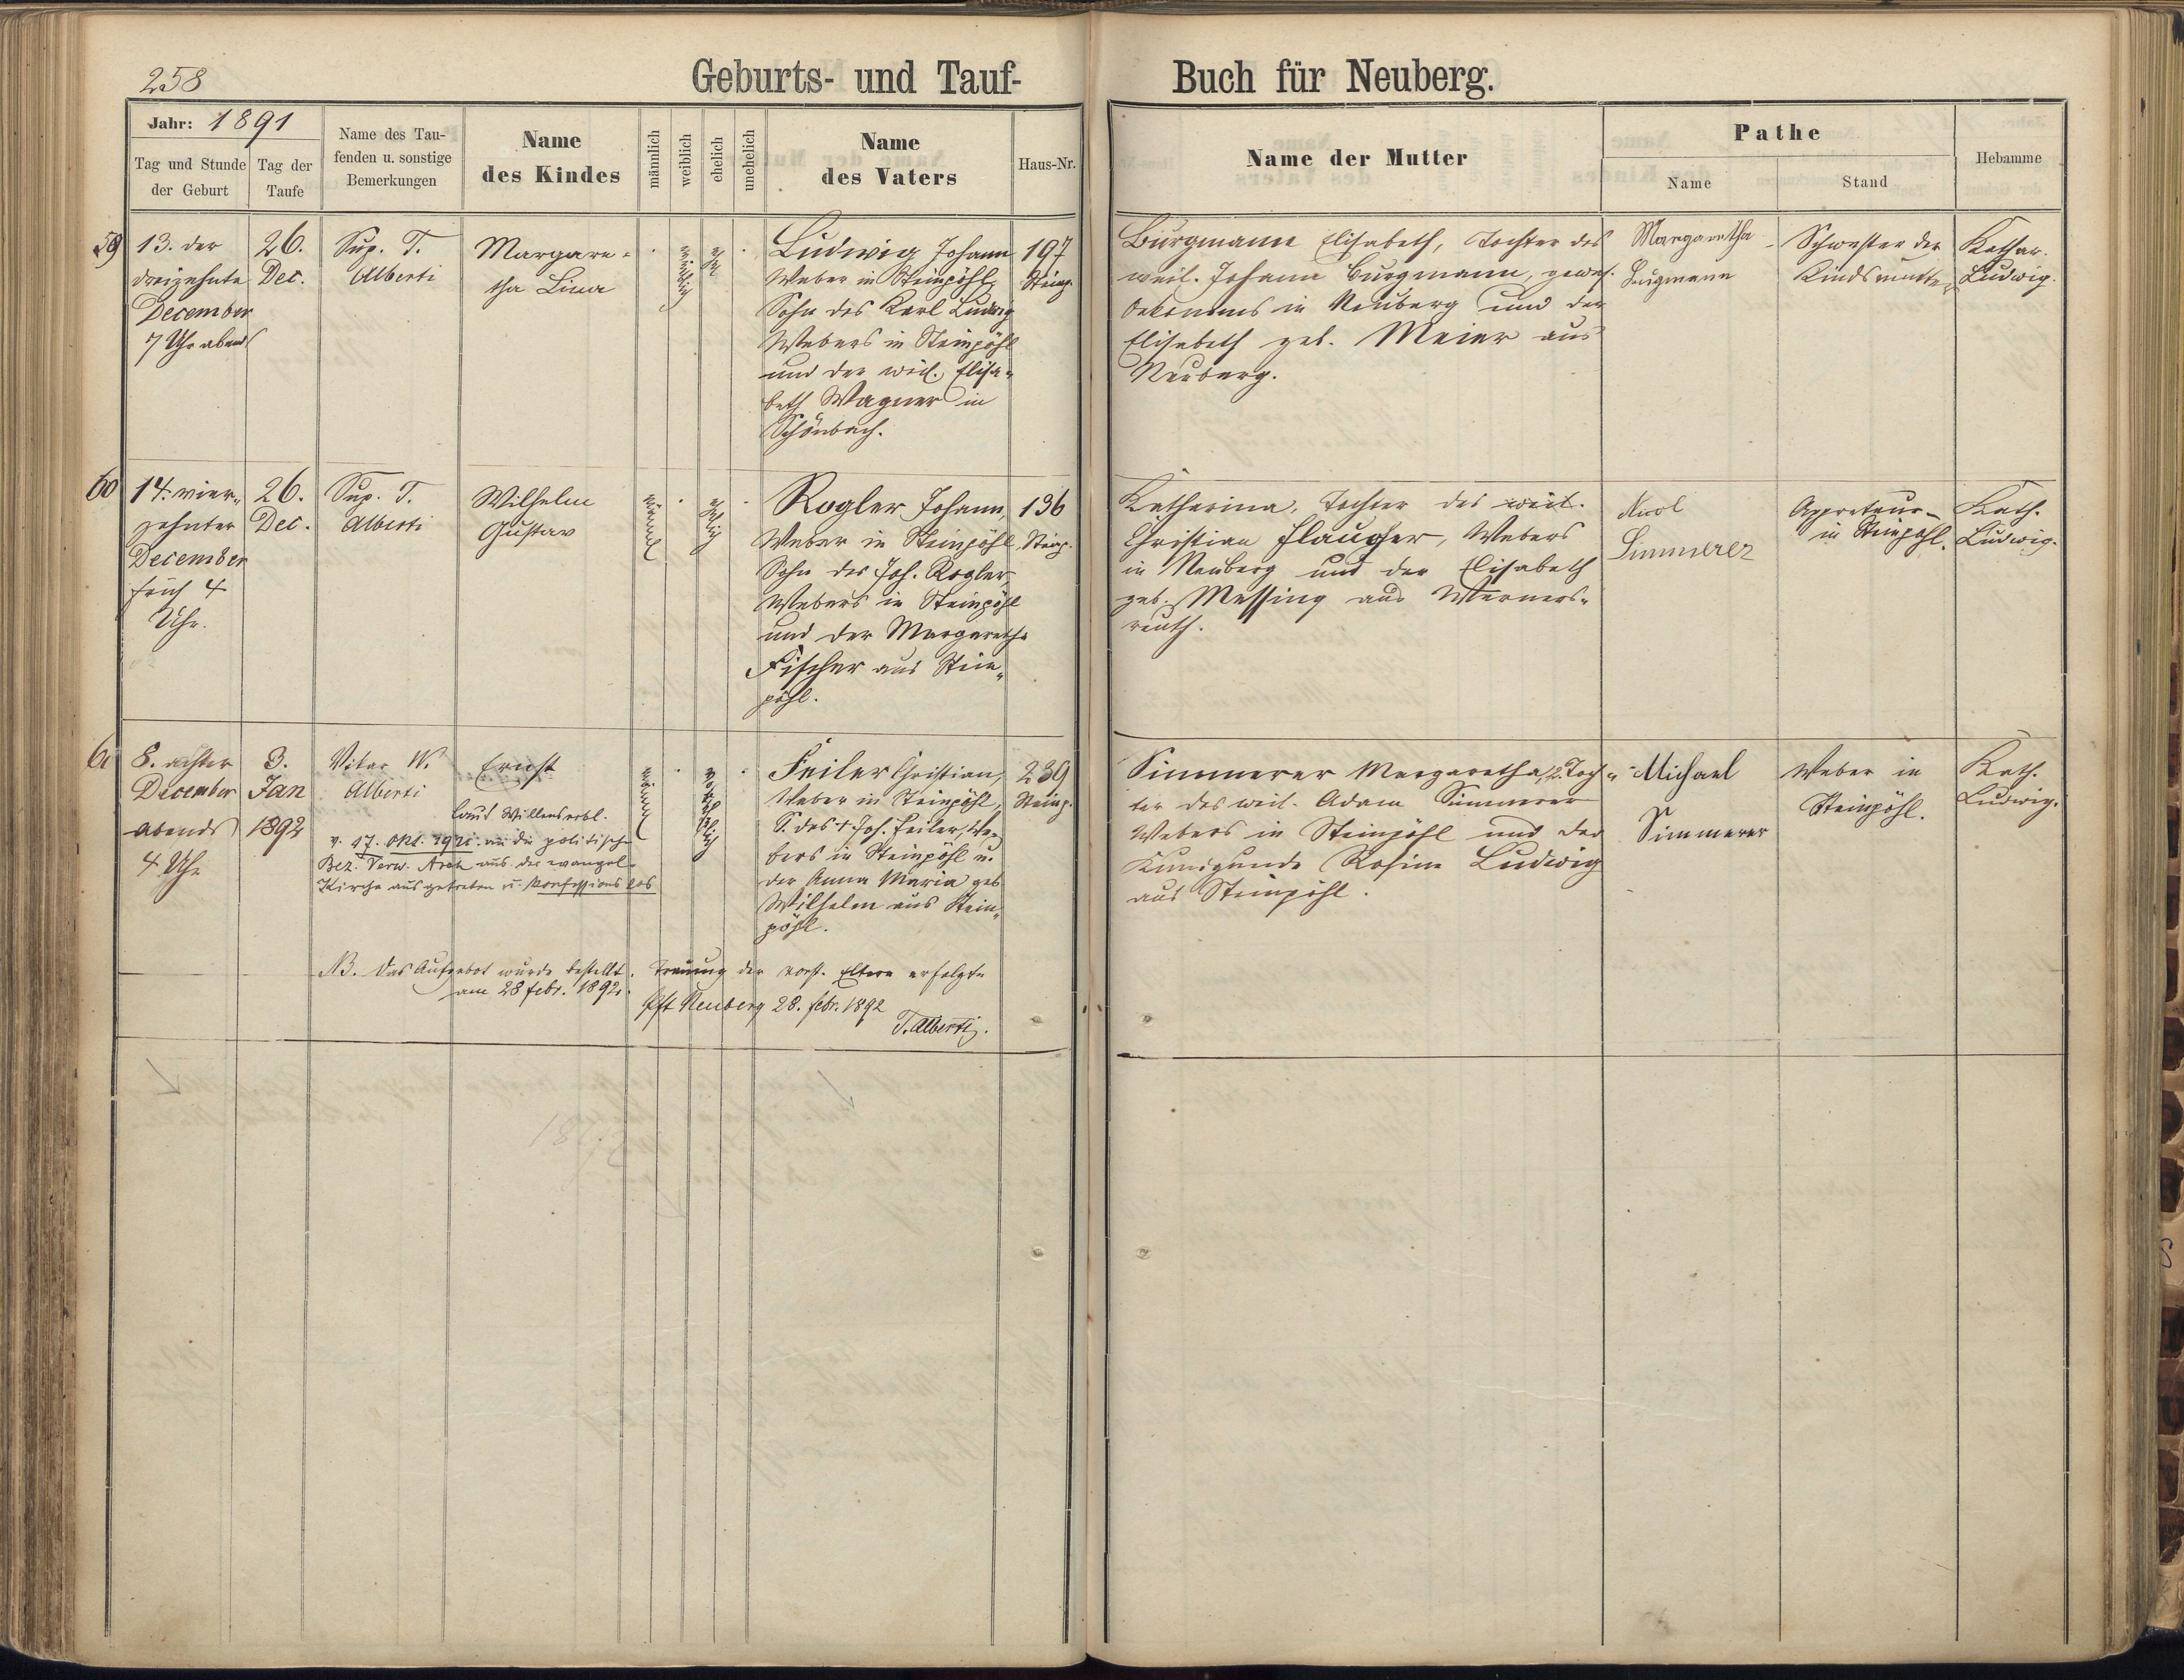 258
Geburts- und Tauf-
Buch für Neuberg.
Jahr: 1891
Tag und Stunde
der Geburt
Tag der
Taufe
Name des Tau-
fenden u. sonstige
Bemerkungen
Name
des Kindes
männlich
weiblich
ehelich
unehelich
Name
des Vaters
Haus-Nr.
Name der Mutter
Pathe
Name
Stand
Hebamme
59
13. der
dreizehnte
December
7 Uhr abends
26.
Dec.
Sup. T.
Alberti
Margare-
tha Lina
weiblich
Ludwig Johann
Weber in Steinpöhl,
Sohn des Karl Ludwig
Webers in Steinpöhl
und der weil. Elisa-
beth Wagner in
Schönbach.
197
Steinp.
Burgmann Elisabeth, Tochter des
weil. Johann Burgmann, gewes.
Oekonoms in Neuberg und der
Elisabeth geb. Meier aus
Neuberg.
Margaretha
Burgmann
Schwester der
Kindsmutter
Kathar.
Ludwig.
60
14. vier-
zehnter
December
früh 4
Uhr.
26.
Dec.
Sup. T.
Alberti
Wilhelm
Gustav
männl
ehelich
Rogler Johann,
Weber in Steinpöhl,
Sohn des Joh. Rogler,
Webers in Steinpöhl
und der Margaretha
Fischer aus Stein-
pöhl.
136
Steinp.
Katharina, Tochter des weil.
Christian Flaucher, Webers
in Neuberg und der Elisabeth
geb. Messing aus Werners-
reuth.
Nicol
Simmerer
Appreteur
in Steinpöhl.
Kath.
Ludwig.
61
8. achter
December
abends
4 Uhr
3.
Jan
1892
Vikar W.
Alberti
Ernst
laut Willenserkl.
v. 17. Okt. 1921 an die politische
Bez. Verw. Asch aus der evangel.
Kirche ausgetreten u. konfessionslos
männl
Feiler Christian,
Weber in Steinpöhl,
S. des + Joh. Feiler, We-
bers in Steinpöhl u.
der Anna Maria geb
Wilhelm aus Stein-
pöhl.
239
Steinp.
Simmerer Margaretha, Toch-
ter des weil. Adam Simmerer
Webers in Steinpöhl und der
Kunigunde Rosine Ludwig
aus Steinpöhl.
Michael
Simmerer
Weber in
Steinpöhl.
Kath.
Ludwig.
NB. Das Aufgebot wurde bestellt. Trauung der vorst. Eltern erfolgte
am 28 febr. 1892.
Pft Neuberg 28. febr. 1892
T. Alberti.